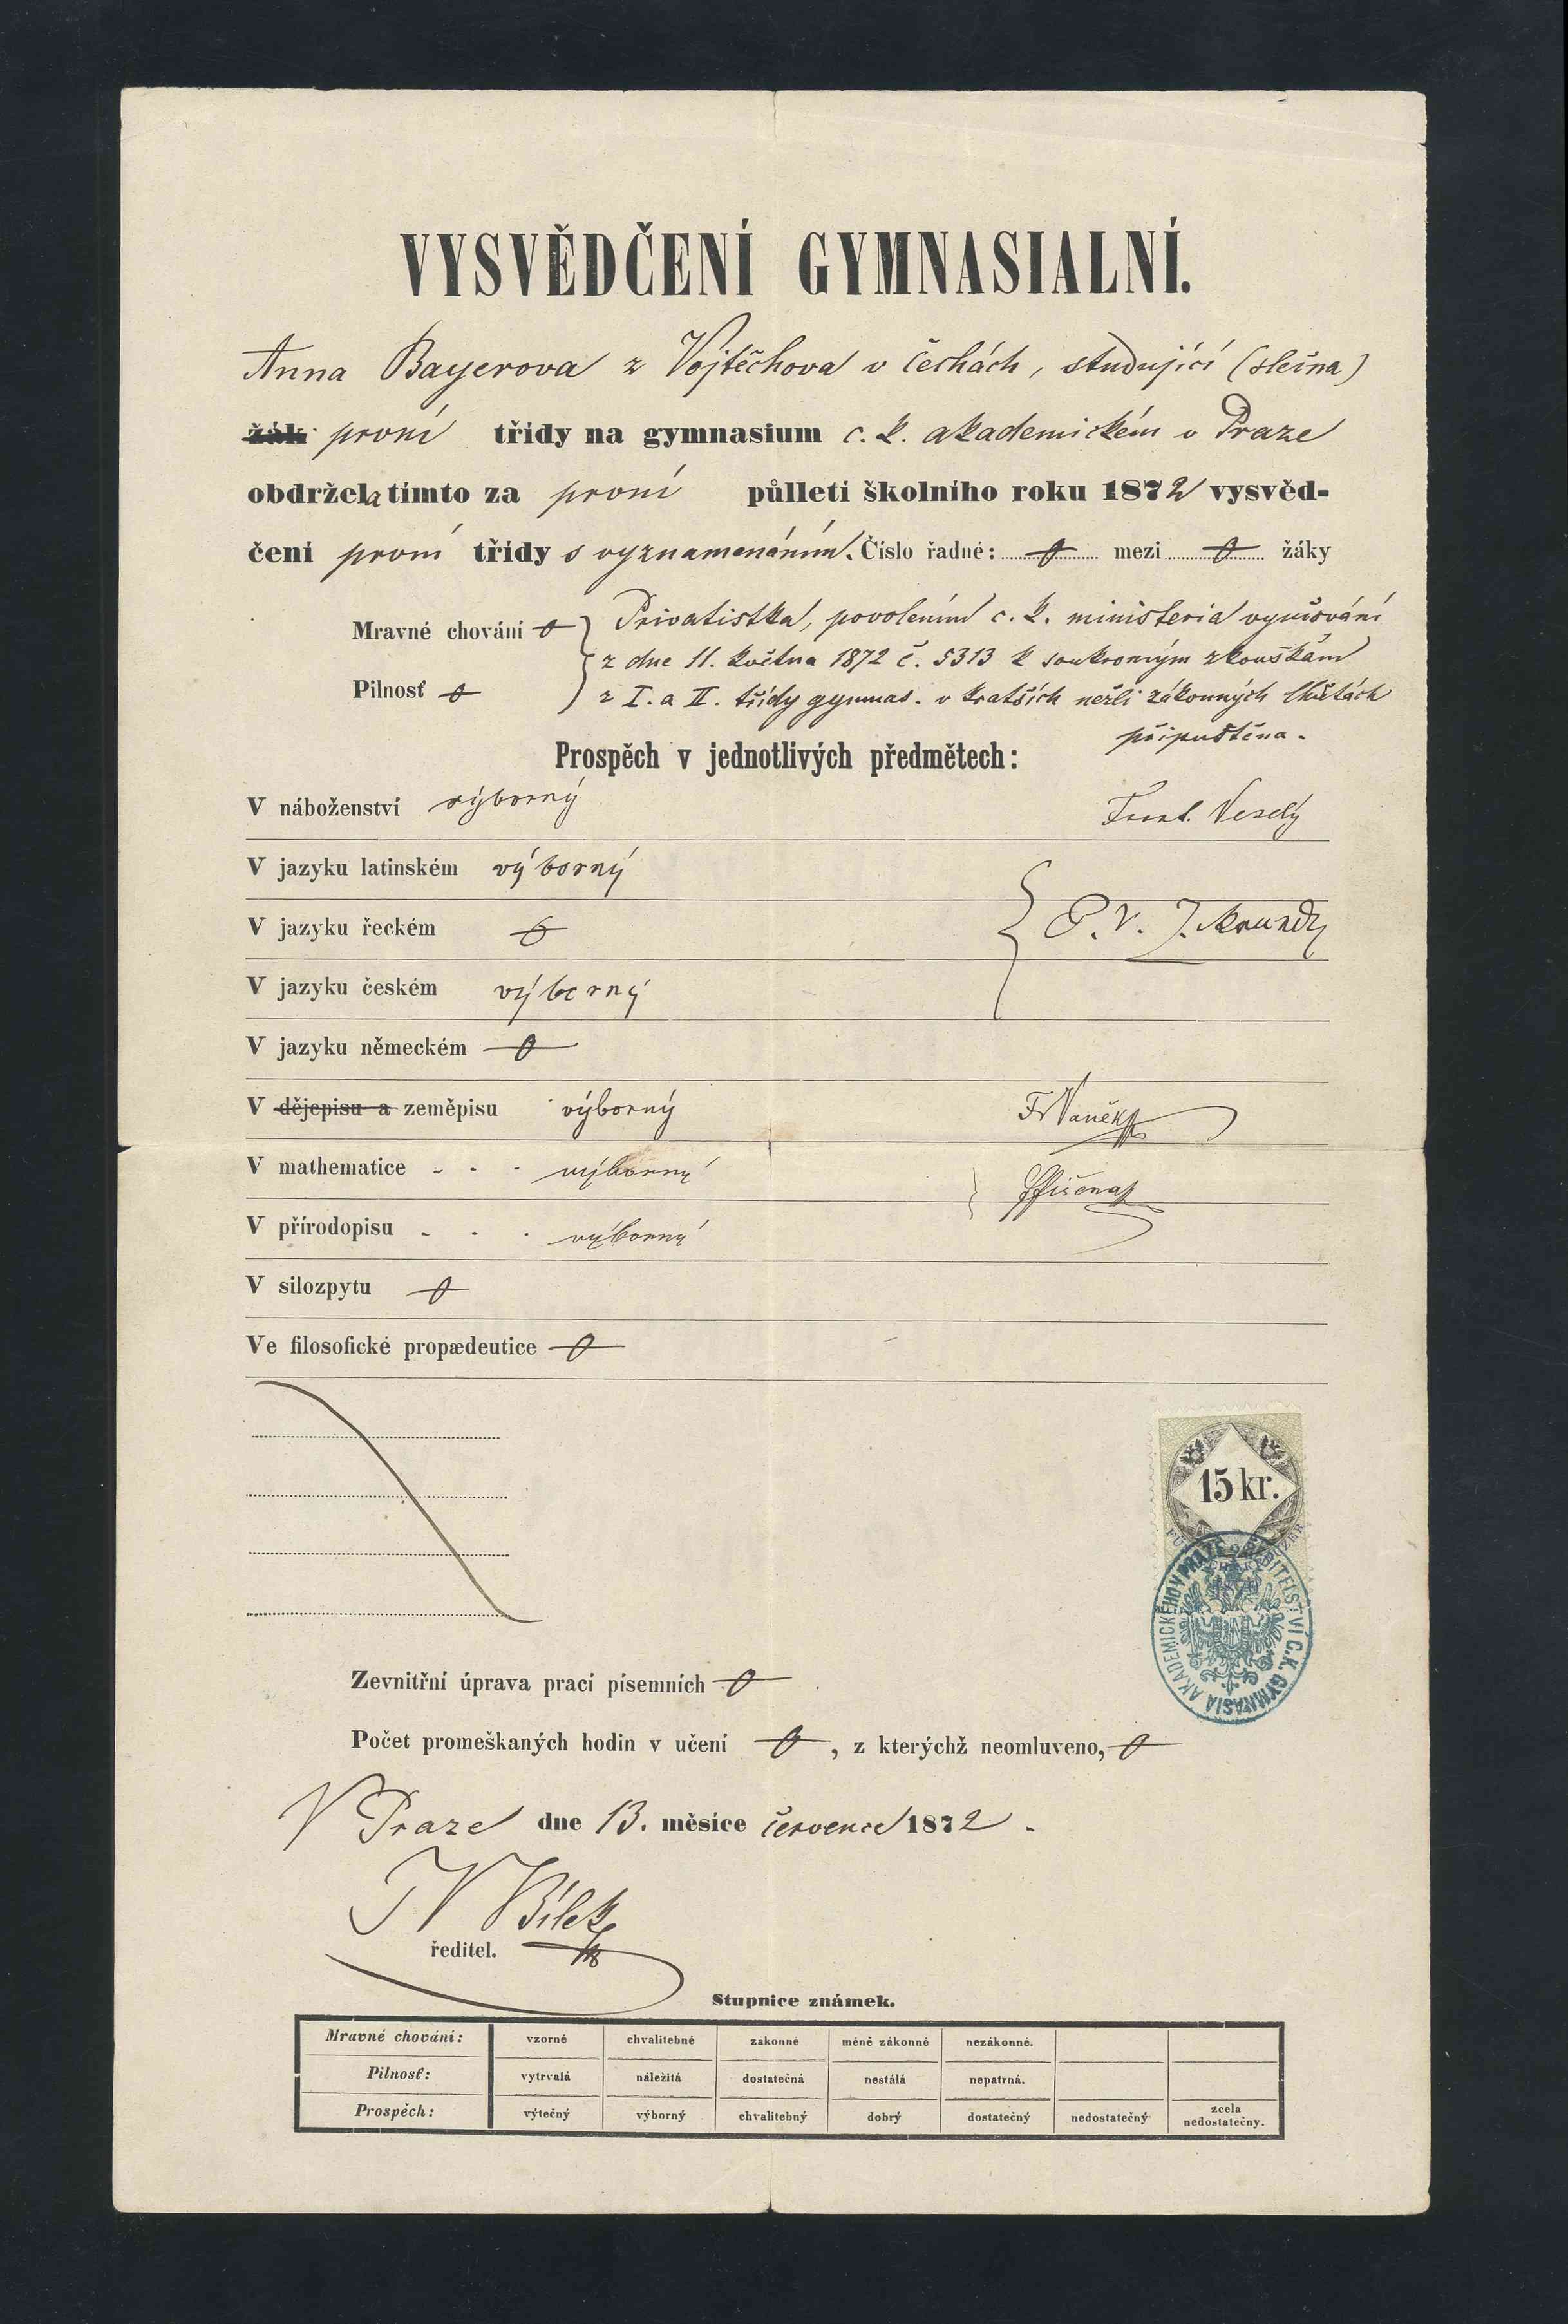 VYSVĚDČENÍ GYMNASIALNÍ.
Anna Bayerova z Vojtěchova v Čechách, studující (slečna)
žák první třídy na gymnasium c. k. akademickém v Praze
obdržela tímto za první půlletí školního roku 1872 vysvěd-
čení první třídy s vyznamenáním. Číslo řadné: 0 mezi 0 žáky
Mravné chování 0 Privatistka, povolením c. k. ministeria vyučování
z dne 11. května 1872 č. 5313 k soukromým zkouškám
Pilnosť 0 z I. a II. třídy gymnas. v kratších nežli zákonných lhůtách
připuštěna.
Prospěch v jednotlivých předmětech:
V náboženství výborný Frant. Veselý
V jazyku latinském výborný
V jazyku řeckém 0 P. V. J.
V jazyku českém výborný
V jazyku německém 0
V dějepisu a zeměpisu výborný Fr Vaněk
V mathematice - - - výborný
V přírodopisu - - - výborný
V silozpytu 0
Ve filosofické propædeutice 0
15 kr.
ŘEDITELSTVÍ C. K. GYMNASIA AKADEMICKÉHO V PRAZE
Zevnitřní úprava prací písemních 0
Počet promeškaných hodin v učení 0, z kterýchž neomluveno, 0
V Praze dne 13. měsíce července 1872.
Bílek
ředitel.
Stupnice známek.
Mravné chování: vzorné chvalitebné zákonné méně zákonné nezákonné.
Pilnosť: vytrvalá náležitá dostatečná nestálá nepatrná.
Prospěch: výtečný výborný chvalitebný dobrý dostatečný nedostatečný zcela nedostatečny.